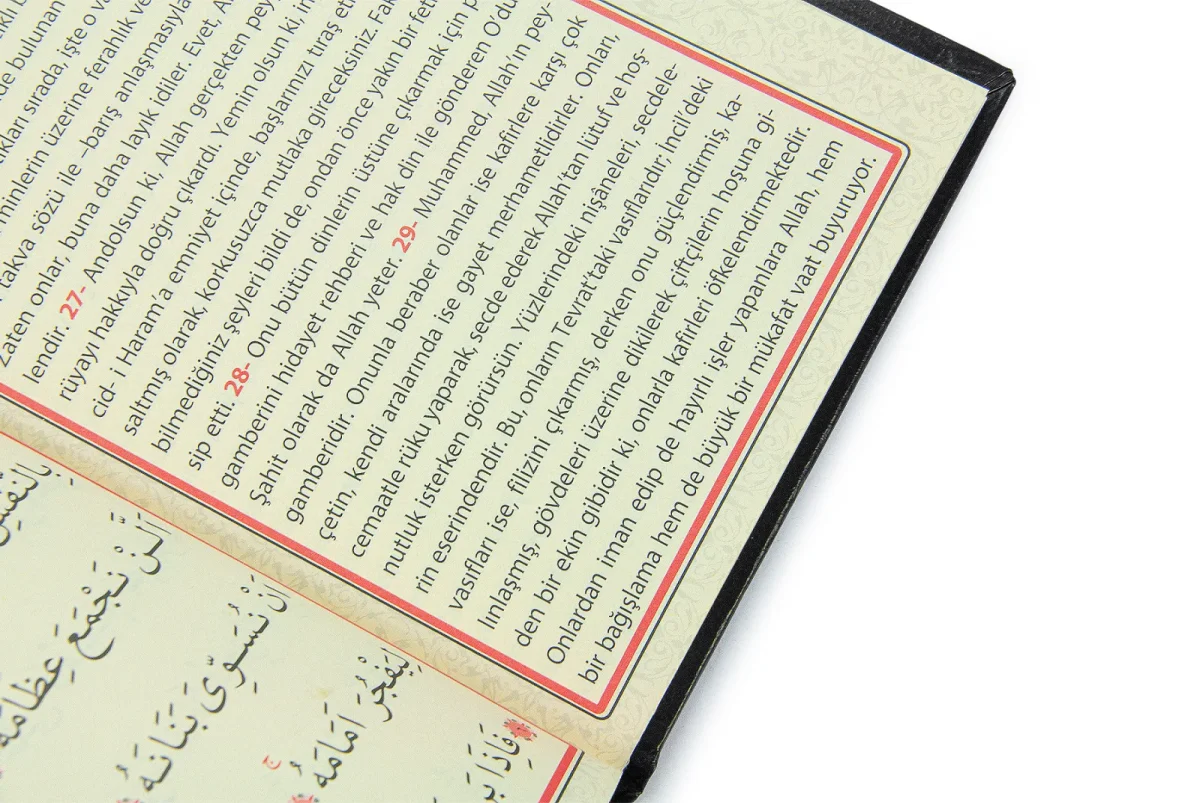 de bulunan
sırada, işte o
minlerin üzerine ferahlık
takva sözü ile –barış anlaşmasıyla
Zaten onlar, buna daha layık idiler. Evet,
lendir. 27- Andolsun ki, Allah gerçekten
rüyayı hakkıyla doğru çıkardı. Yemin olsun ki,
cid- i Haram'a emniyet içinde, başlarınızı tıraş
saltmış olarak, korkusuzca mutlaka gireceksiniz.
bilmediğiniz şeyleri bildi de, ondan önce yakın bir
sip etti. 28- Onu bütün dinlerin üstüne çıkarmak için
gamberini hidayet rehberi ve hak din ile gönderen O'du
Şahit olarak da Allah yeter. 29- Muhammed, Allah'ın pey-
gamberidir. Onunla beraber olanlar ise kafirlere karşı çok
çetin, kendi aralarında ise gayet merhametlidirler. Onları,
cemaatle rüku yaparak, secde ederek Allah'tan lütuf ve hoş-
nutluk isterken görürsün. Yüzlerindeki nişâneleri, secdele-
rin eserindendir. Bu, onların Tevrat'taki vasıflarıdır; İncil'deki
vasıfları ise, filizini çıkarmış, derken onu güçlendirmiş, ka-
lınlaşmış, gövdeleri üzerine dikilerek çiftçilerin hoşuna gi-
den bir ekin gibidir ki, onlarla kafirleri öfkelendirmektedir.
Onlardan iman edip de hayırlı işler yapanlara Allah, hem
bir bağışlama hem de büyük bir mükafat vaat buyuruyor.
بِالنَّفْسِ
اَلَّنْ نَجْمَعَ عِظَامَهُ
اَنْ نُسَوِّىَ بَنَانَهُ
لِيَفْجُرَ اَمَامَهُ
فَاِذَا